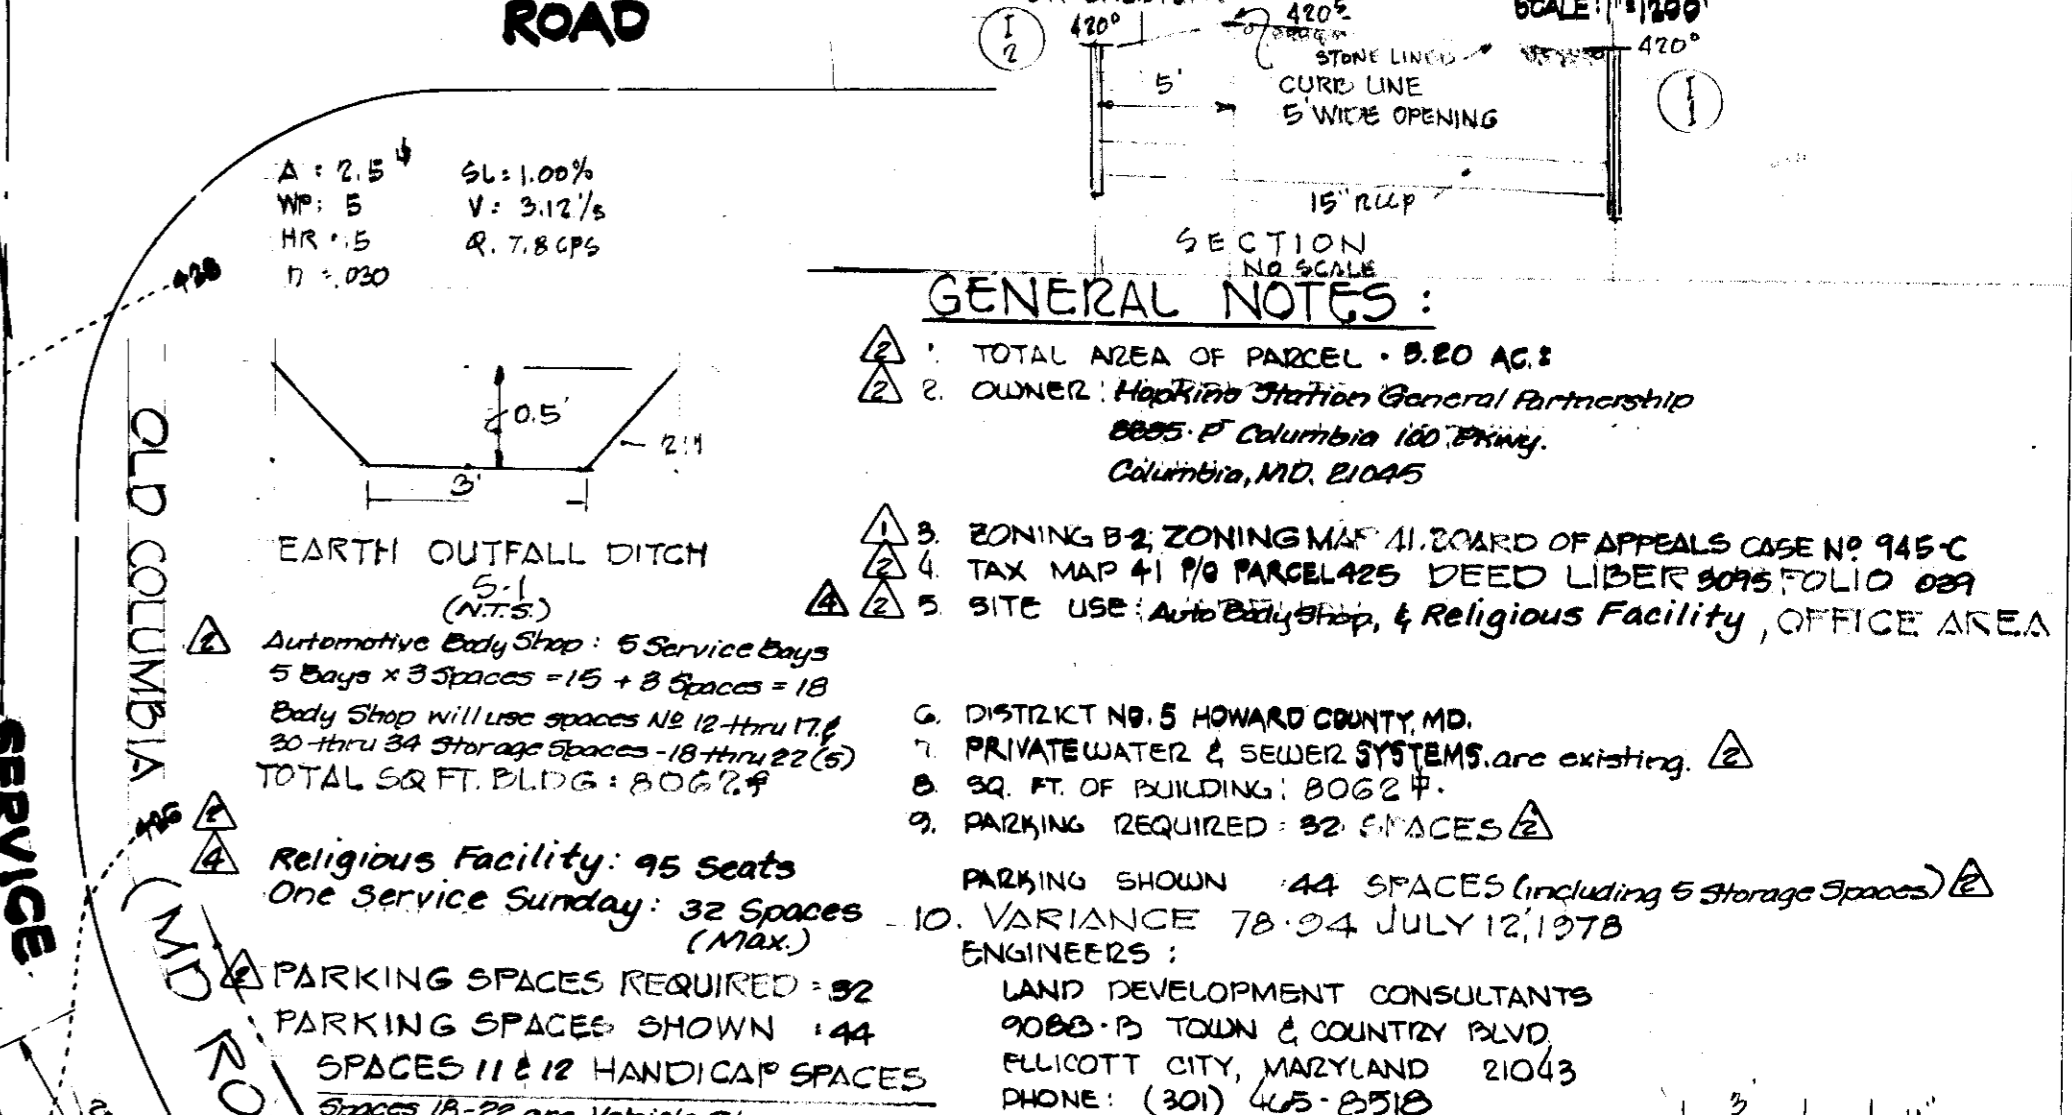 ROAD
I
2
420°
420⁵
SCALE: 1"=1200'
STONE LINED
420°
5'
CURB LINE
5' WIDE OPENING
I
1
15" RCCP
SECTION
NO SCALE
A : 2.5 SL: 1.00%
WP: 5 V: 3.12'/s
HR : .5 Q. 7.8 CFS
n = .030
428
0.5'
2:1
3'
EARTH OUTFALL DITCH
S-1
(N.T.S.)
2 Automotive Body Shop: 5 Service Bays
5 Bays x 3 Spaces = 15 + 3 Spaces = 18
Body Shop will use spaces Nº 12 thru 17 &
30 thru 34 Storage Spaces - 18 thru 22 (5)
TOTAL SQ FT. BLDG : 8062
426
2
4 Religious Facility: 95 Seats
One Service Sunday: 32 Spaces
(Max.)
2 PARKING SPACES REQUIRED : 32
PARKING SPACES SHOWN : 44
SPACES 11 & 12 HANDICAP SPACES
Spaces 18-22 are Vehicle
OLD COLUMBIA
(MD RO
SERVICE
GENERAL NOTES :
2 1. TOTAL AREA OF PARCEL . 5.20 AC.±
2 2. OWNER: Hopkins Station General Partnership
8835-P Columbia 100 PKwy.
Columbia, MD. 21045
1 3. ZONING B-2, ZONING MAP 41. BOARD OF APPEALS CASE Nº 945-C
2 4. TAX MAP 41 P/O PARCEL 425 DEED LIBER 3095 FOLIO 039
4 2 5. SITE USE: Auto Body Shop, & Religious Facility, OFFICE AREA
6. DISTRICT NO. 5 HOWARD COUNTY, MD.
7. PRIVATE WATER & SEWER SYSTEMS. are existing. 2
8. SQ. FT. OF BUILDING: 8062
9. PARKING REQUIRED : 32 SPACES 2
PARKING SHOWN : 44 SPACES (including 5 Storage Spaces) 2
10. VARIANCE 78-94 JULY 12, 1978
ENGINEERS :
LAND DEVELOPMENT CONSULTANTS
9088-B TOWN & COUNTRY BLVD.
ELLICOTT CITY, MARYLAND 21043
PHONE: (301) 465-8518
3